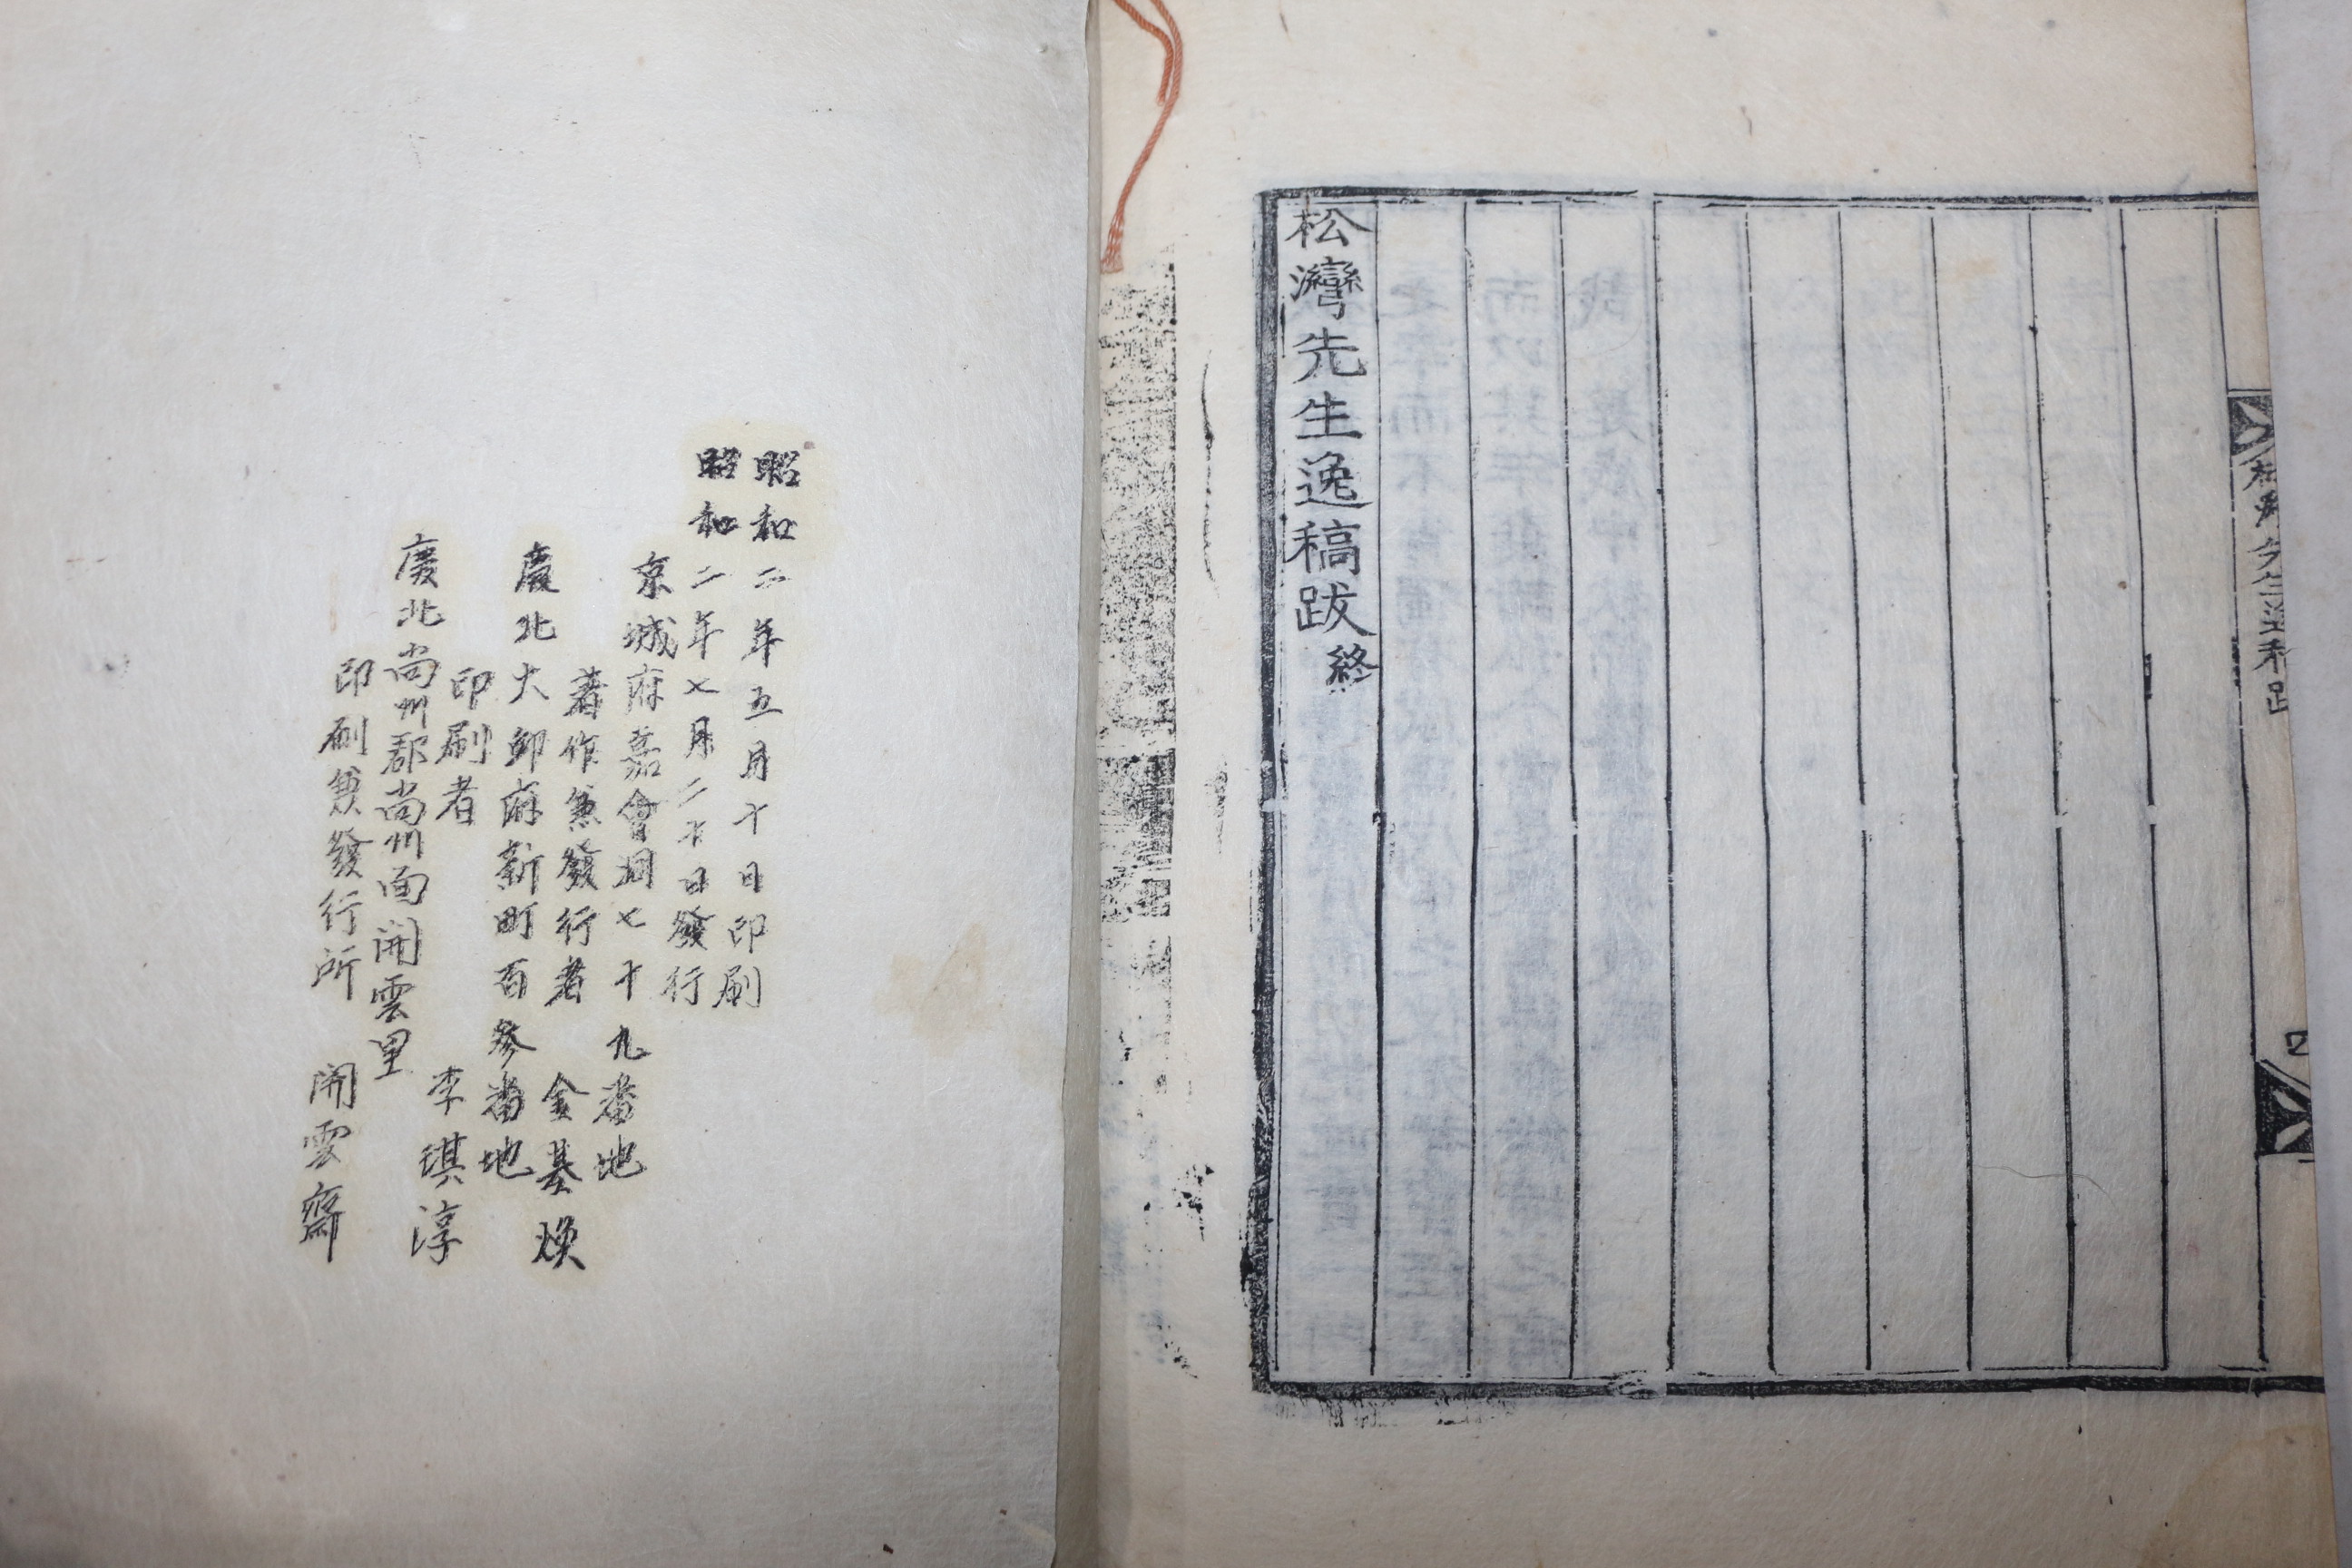 松灣先生逸稿跋 終
昭和二年五月十日印刷
昭和二年七月二十日發行
京城府嘉會洞七十九番地
著作兼發行者 金基煥
慶北大邱府新町百參番地
印刷者 李琪淳
慶北尙州郡尙州面開雲里
印刷兼發行所 開雲齋